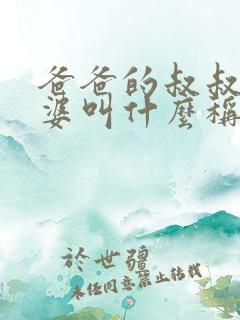 爸爸的叔叔
婆叫什麼稱
於世疆
未任同意禁止轉載